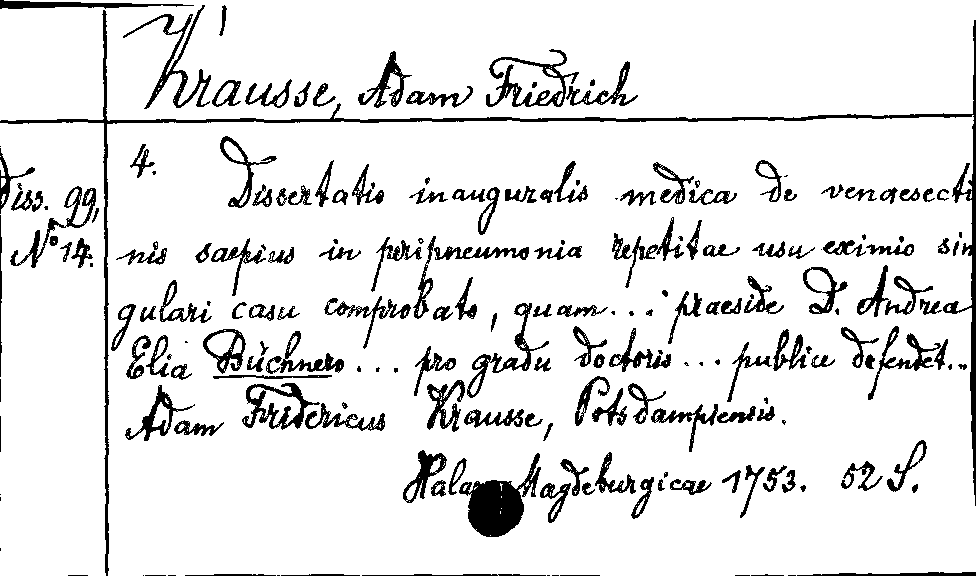 Krausse, Adam Friedrich
4.
Diss. 99,
No 14.
Dissertatio inauguralis medica de venaesecti
nis saepius in peripneumonia repetitae usu eximio sin
gulari casu comprobato, quam... praeside D. Andrea
Elia Büchnero... pro gradu doctoris... publice defendet...
Adam Fridericus Krausse, Potsdampiensis.
Halae Magdeburgicae 1753. 52 S.